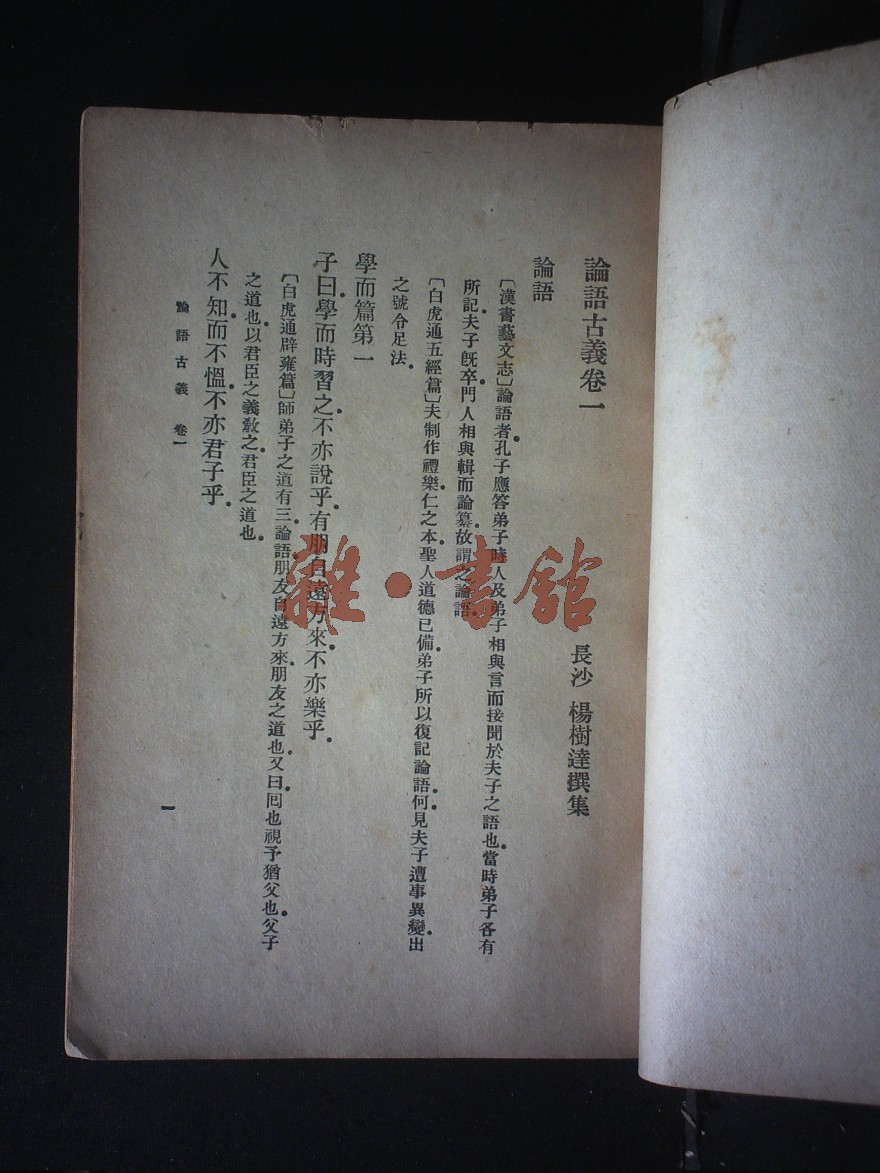 論語古義卷一
長沙 楊樹達撰集
論語
〔漢書藝文志〕論語者。孔子應答弟子時人及弟子相與言而接聞於夫子之語也。當時弟子各有
所記。夫子旣卒。門人相與輯而論纂。故謂之論語。
〔白虎通五經篇〕夫制作禮樂。仁之本。聖人道德已備。弟子所以復記論語何。見夫子遭事異變。出
之號令足法。
學而篇第一
子曰。學而時習之。不亦說乎。有朋自遠方來。不亦樂乎。
〔白虎通辟雍篇〕師弟子之道有三。論語。朋友自遠方來。朋友之道也。又曰。囘也視予猶父也。父子
之道也。以君臣之義敎之。君臣之道也。
人不知。而不慍。不亦君子乎。
論語古義 卷一
一
雜·書館